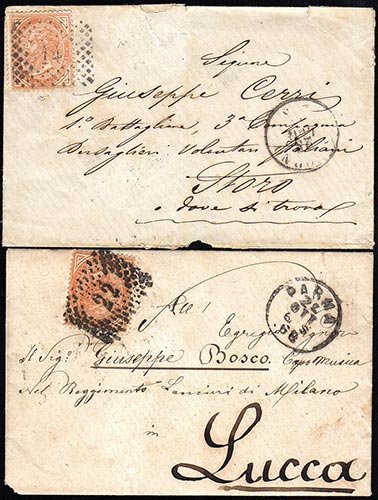 Signore
Giuseppe Cerri
1º Battaglione, 3ª Compagnia
Bersaglieri Volontari Italiani
Storo
o dove si trova
22
PARMA
All'
Egregio
Il Sigr. Giuseppe Bosco. Capo Musica
nel Reggimento Lancieri di Milano
in
Lucca